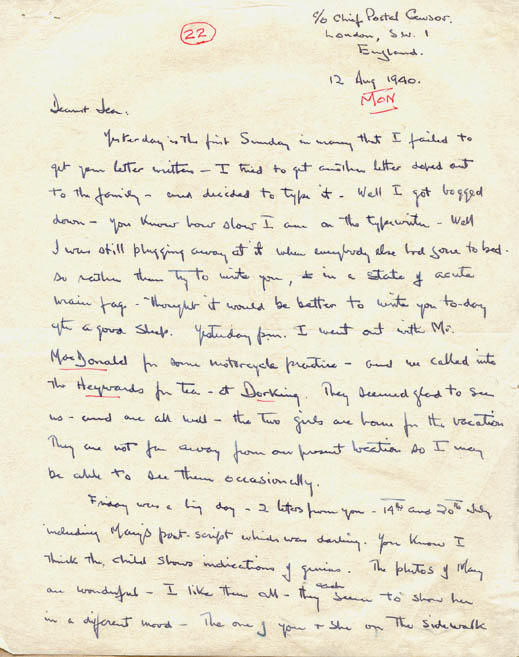 c/o Chief Postal Censor.
London, S.W. 1
England.
22
12 Aug 1940.
MON
Dearest Jean:
Yesterday is the first Sunday in many that I failed to
get your letter written - I tried to get another letter doped out
to the family - and decided to type it - Well I got bogged
down - you know how slow I am on the typewriter - Well
I was still plugging away at it when everybody else had gone to bed.
so rather than try to write you, in a state of acute
brain fag - thought it would be better to write you to-day
after a good sleep. Yesterday p.m. I went out with Mr.
MacDonald for some motorcycle practice - and we called into
the Heywards for tea - at Dorking. They seemed glad to see
us - and are all well - the two girls are home for the vacation
They are not far away from our present location so I may
be able to see them occasionally.
Friday was a big day - 2 letters from you - 14th and 20th July
including May's post-script which was darling. You know I
think the child shows indications of genius. The photos of May
are wonderful - I like them all - they each seem to show her
in a different mood - The one of you + she on the sidewalk